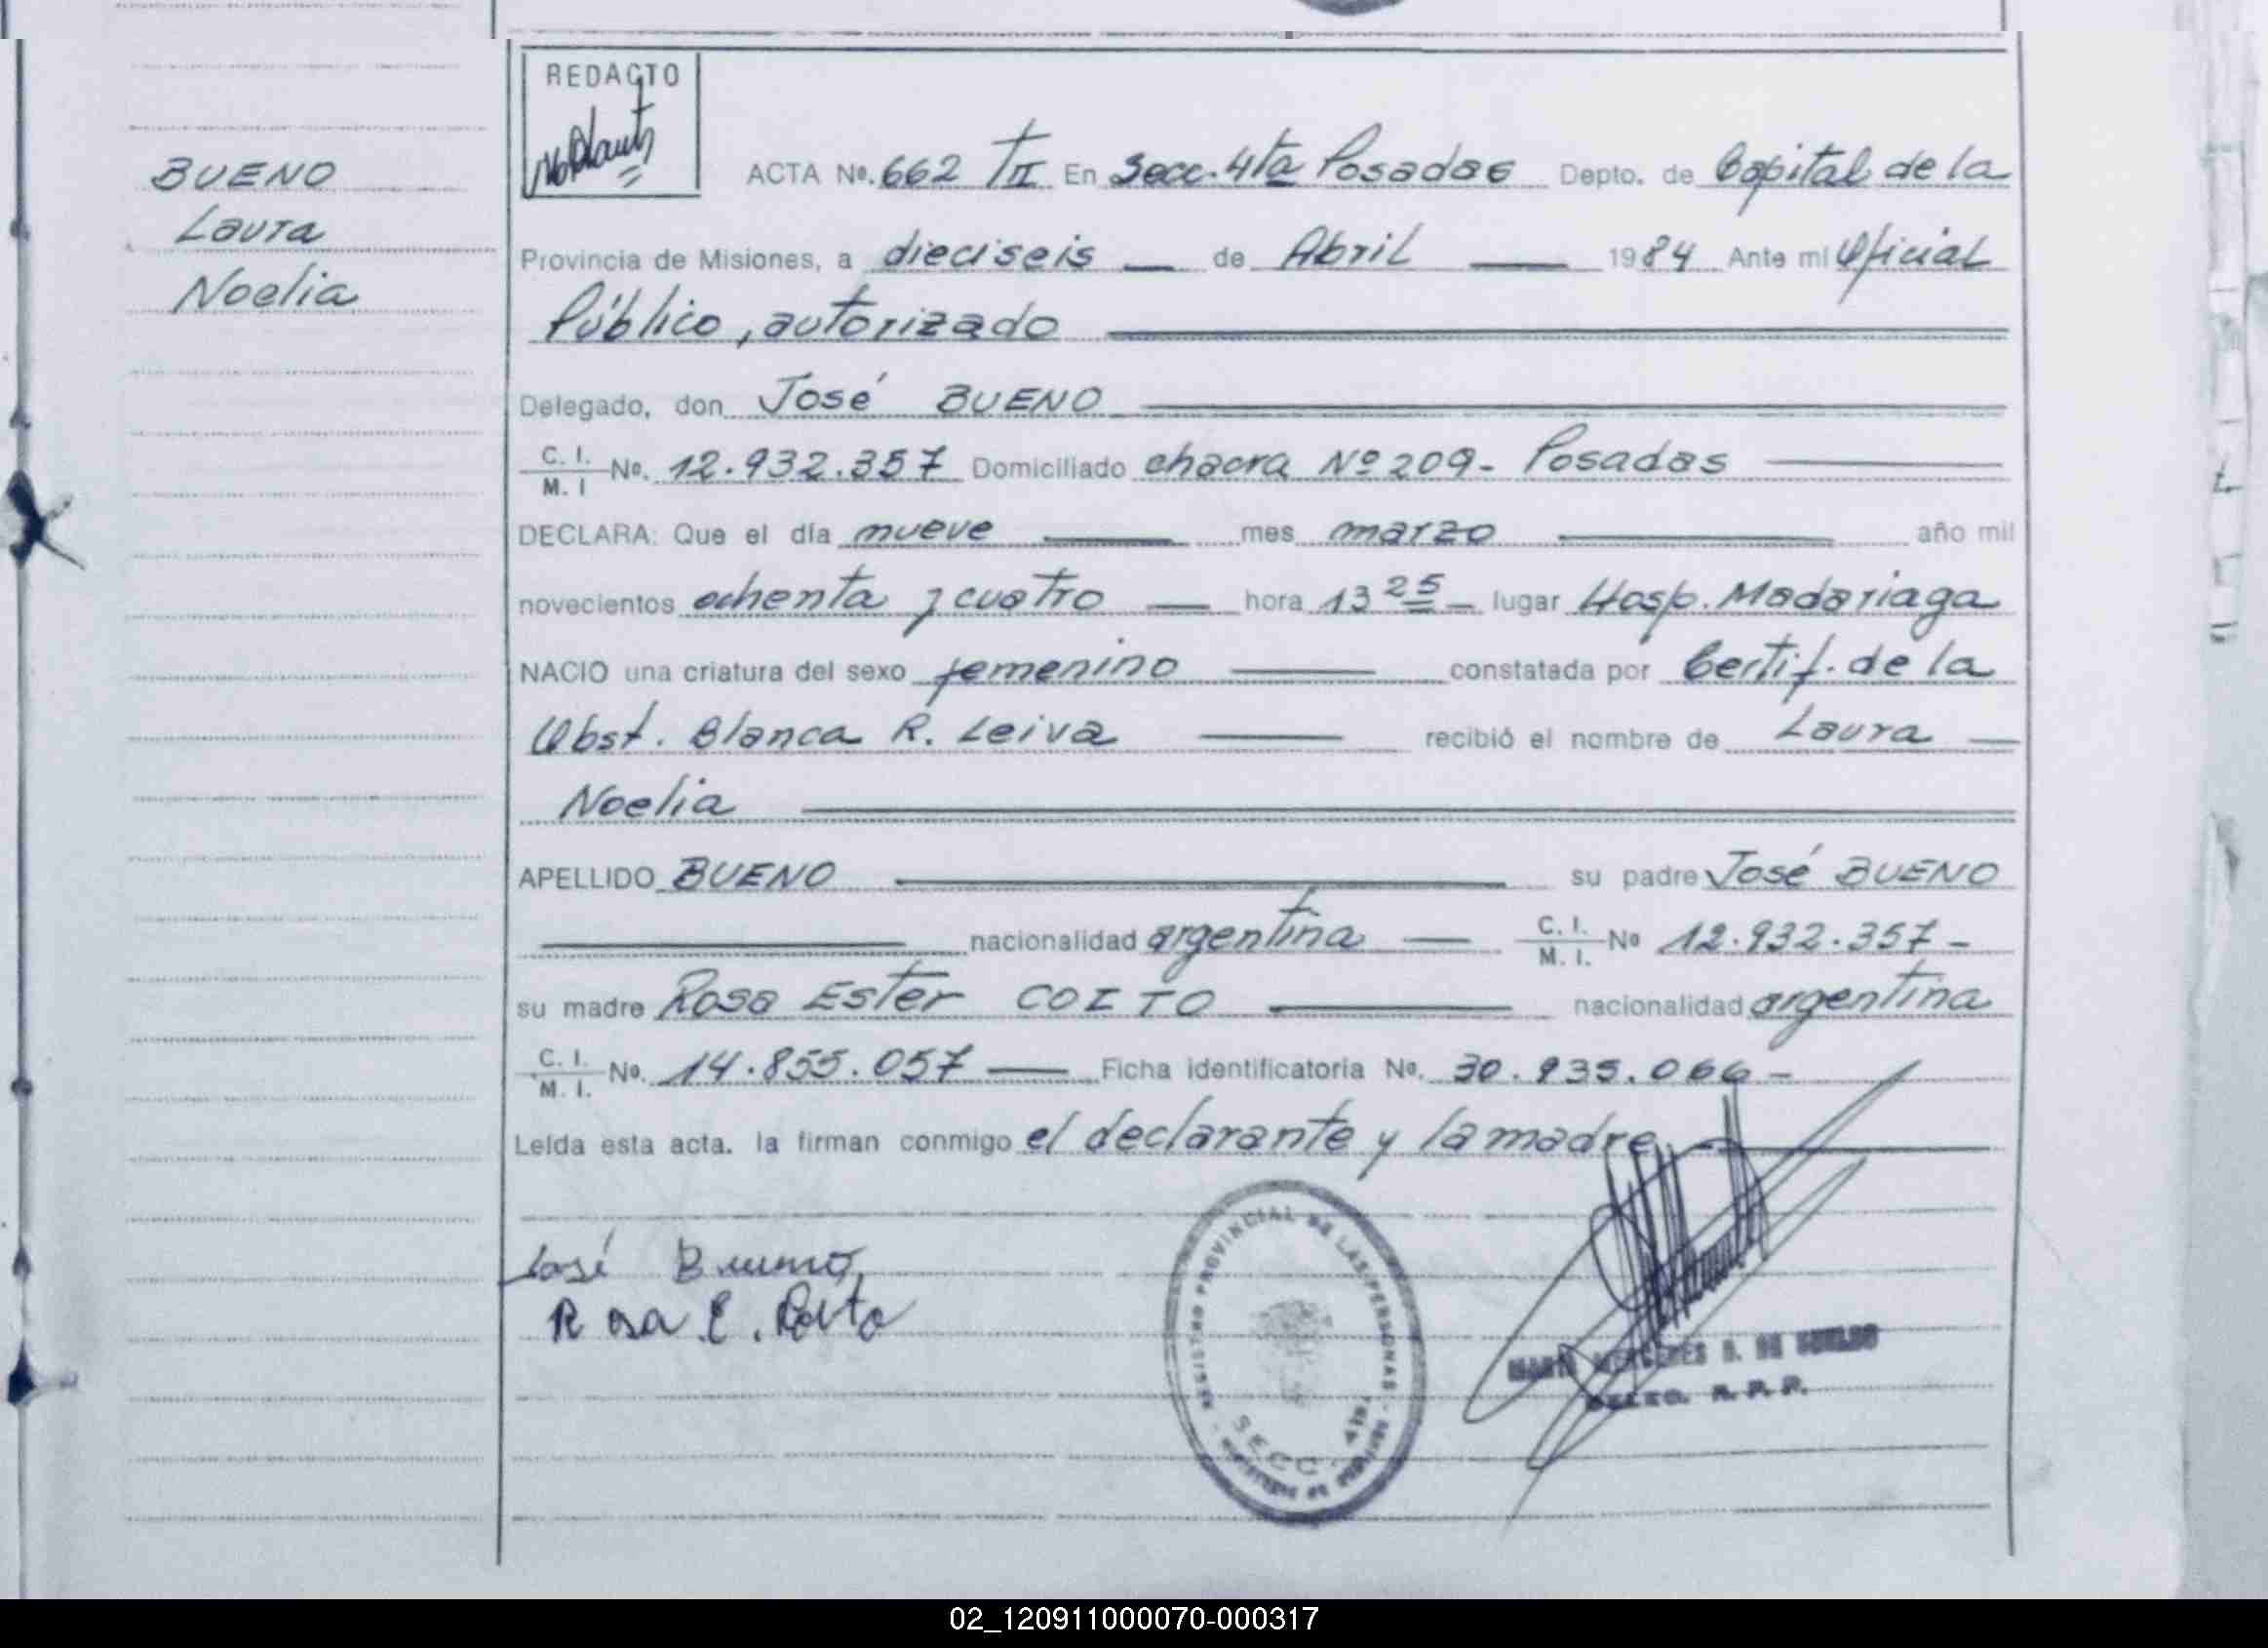 REDACTO
BUENO
Laura
Noelia
ACTA No. 662 TII En Secc. 4ta Posadas Depto. de Capital de la
Provincia de Misiones, a dieciseis de Abril 1984 Ante mi Oficial
Público, autorizado
Delegado, don José BUENO
C. I. M. I No. 12.932.357 Domiciliado chacra Nº 209- Posadas
DECLARA: Que el día nueve mes marzo año mil
novecientos ochenta y cuatro hora 13 25 lugar Hosp. Madariaga
NACIO una criatura del sexo femenino constatada por Certif. de la
Obst. Blanca R. Leiva recibió el nombre de Laura
Noelia
APELLIDO BUENO su padre José BUENO
nacionalidad argentina C. I. M. I. No 12.932.357-
su madre Rosa Ester COITO nacionalidad argentina
C. I. M. I. No. 14.855.057 Ficha identificatoria No. 30.935.066-
Leída esta acta. la firman conmigo el declarante y la madre
José Bueno
Rosa E. Coito
REGISTRO PROVINCIAL DE LAS PERSONAS
SECC. 4ta
DE
R. P. P.
02_120911000070-000317